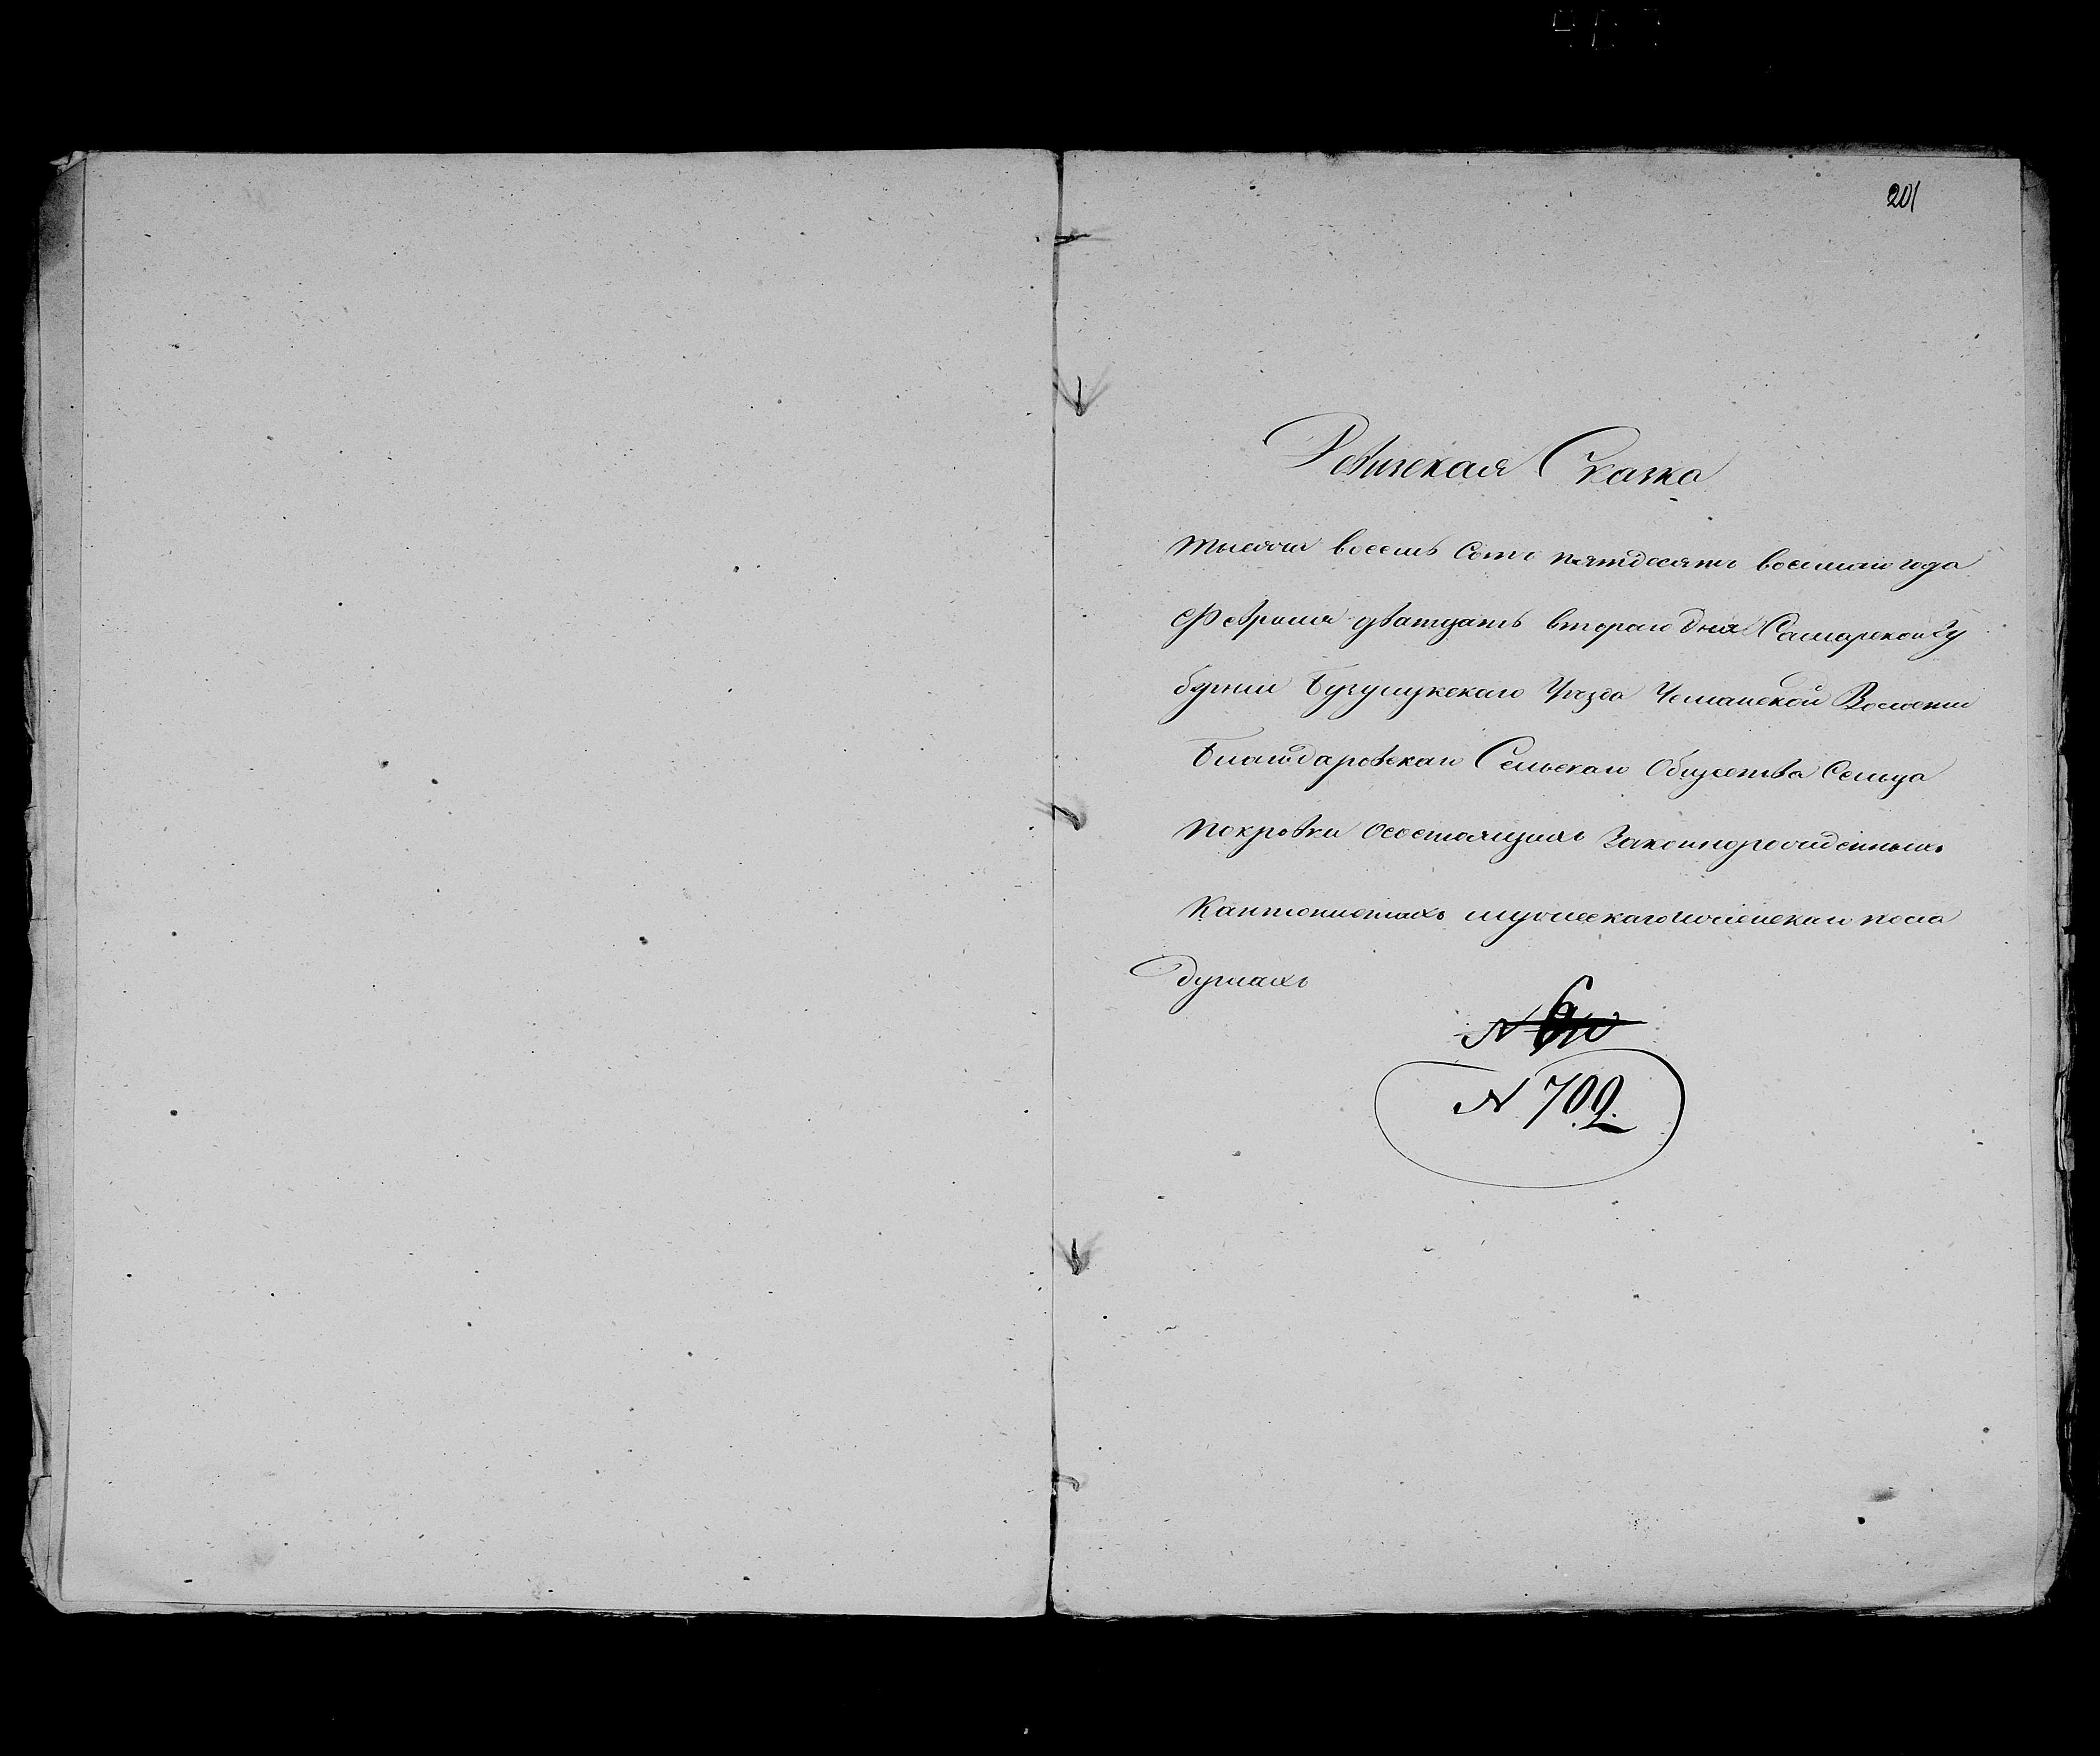 201
Ревизская Сказка
тысяча восемь сотъ пятдесятъ восьмаго года
Февраля дватцать втораго дня Самарской Гу
бернии Бузулукскаго Уезда Чеманской Волости
Благодаровскаго Сельскаго Общества Сельца
Покровки осостоящихъ Законнорожденныхъ
Кантонистахъ мужескаго и женскаго пола
душахъ
N
N 702.